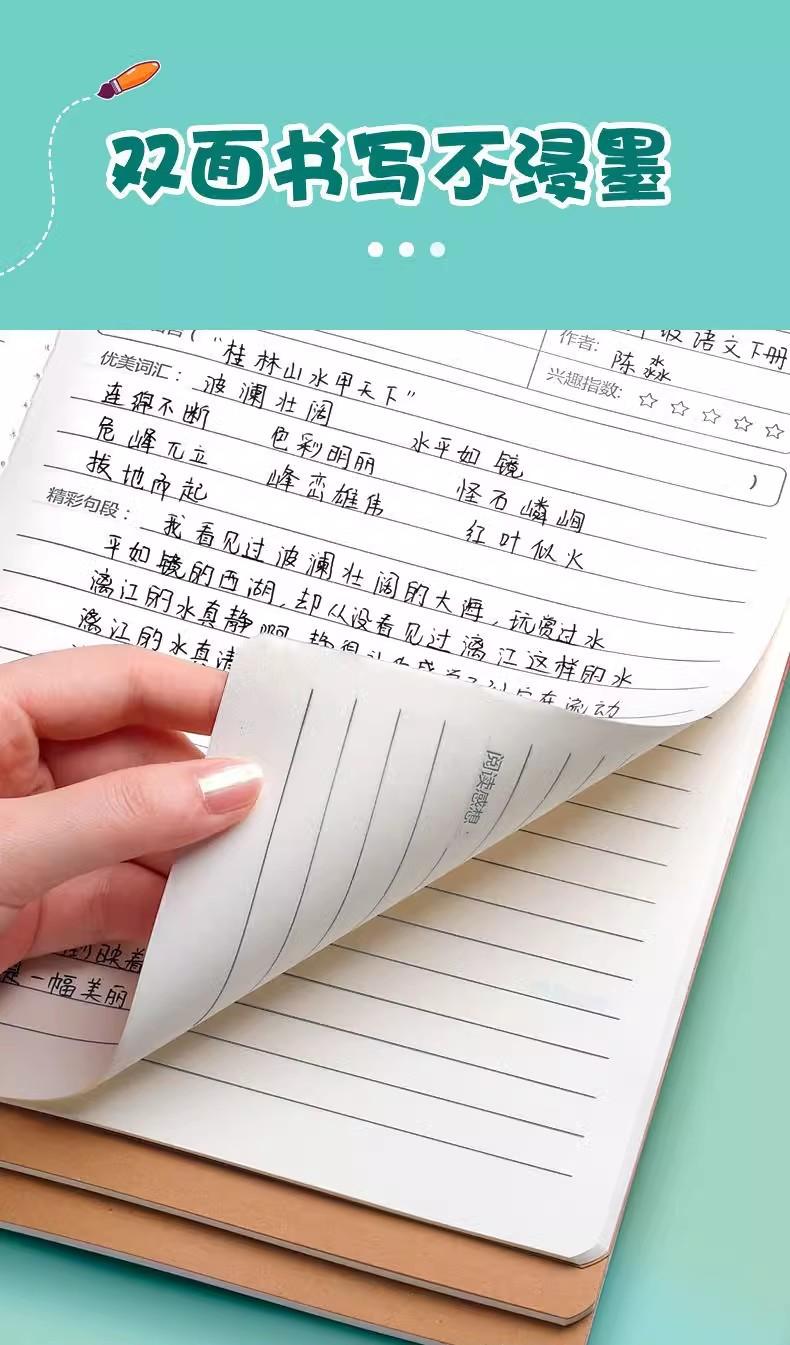 双面书写不浸墨
("桂林山水甲天下"
作者: 陈淼
级语文下册
兴趣指数: ☆ ☆ ☆ ☆ ☆
优美词汇: 波澜壮阔 水平如镜
连绵不断 色彩明丽 怪石嶙峋 )
危峰兀立 峰峦雄伟 红叶似火
拔地而起
精彩句段: 我看见过波澜壮阔的大海,玩赏过水
平如镜的西湖,却从没看见过漓江这样的水
漓江的水真静啊
漓江的水真清
流动
阅读感想:
映着
一幅美丽